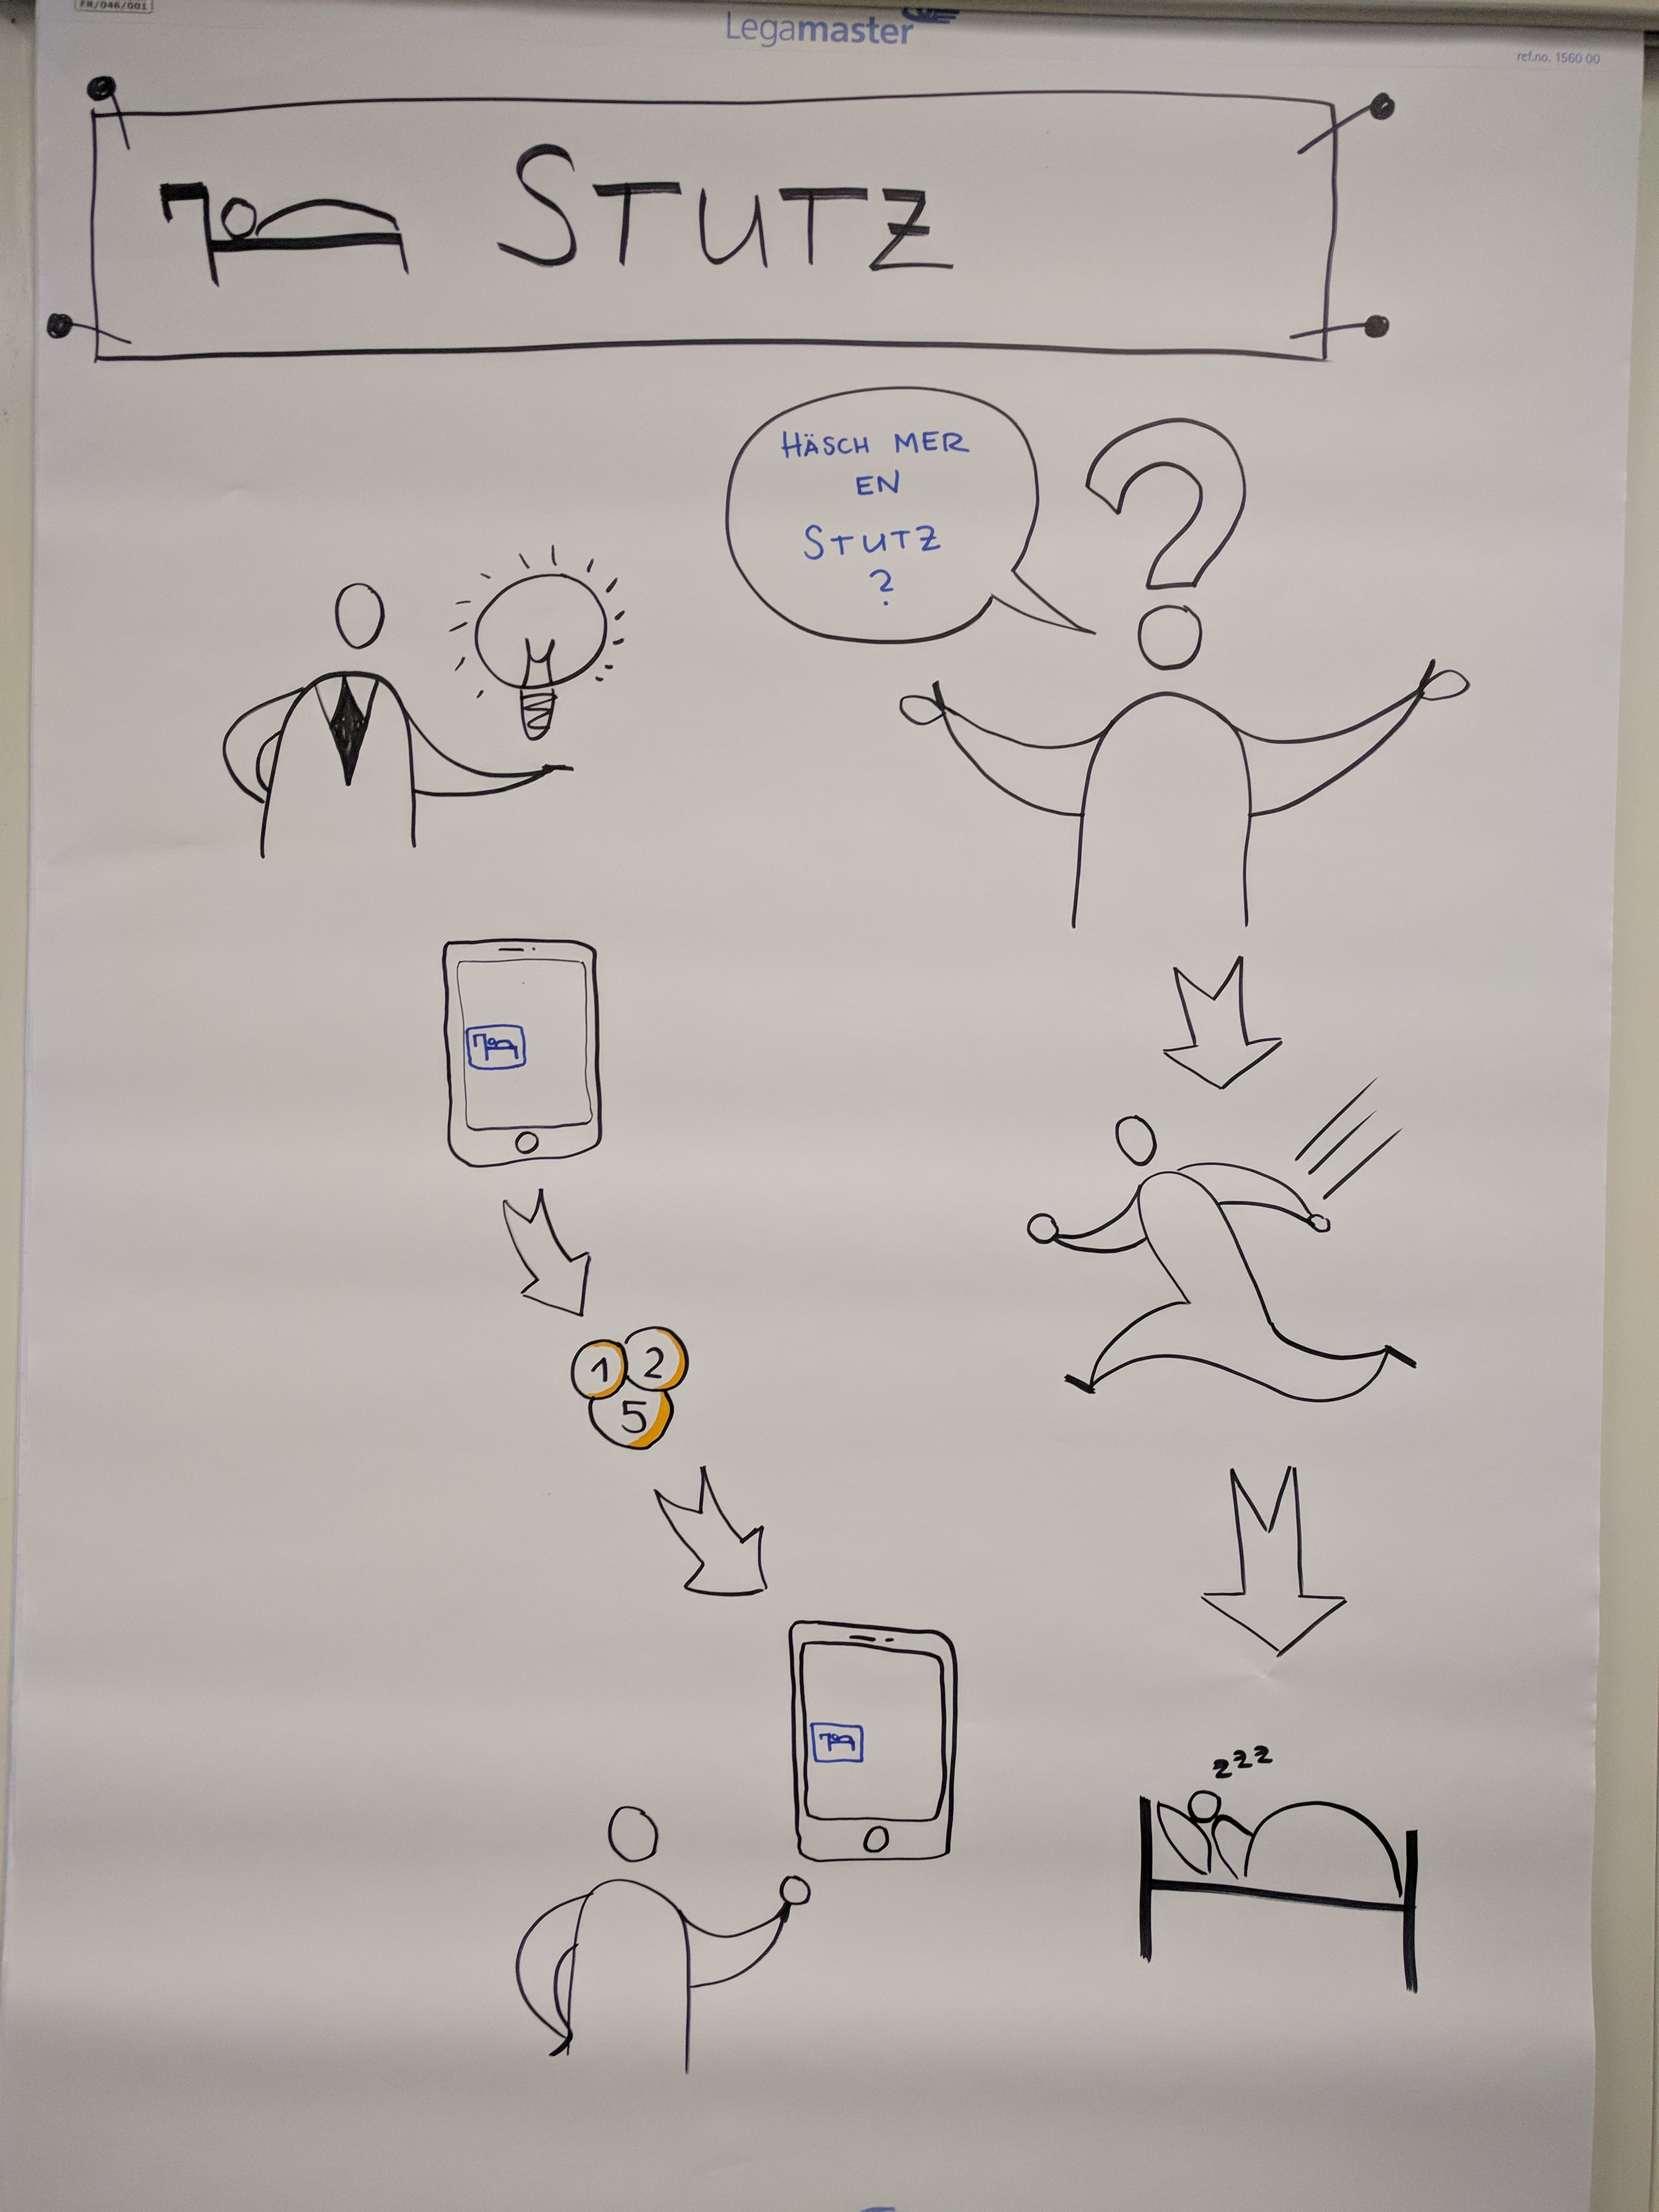 FR/046/001
Legamaster
ref.no. 1560 00
STUTZ
HÄSCH MER
EN
STUTZ
?
1 2
5
zzz